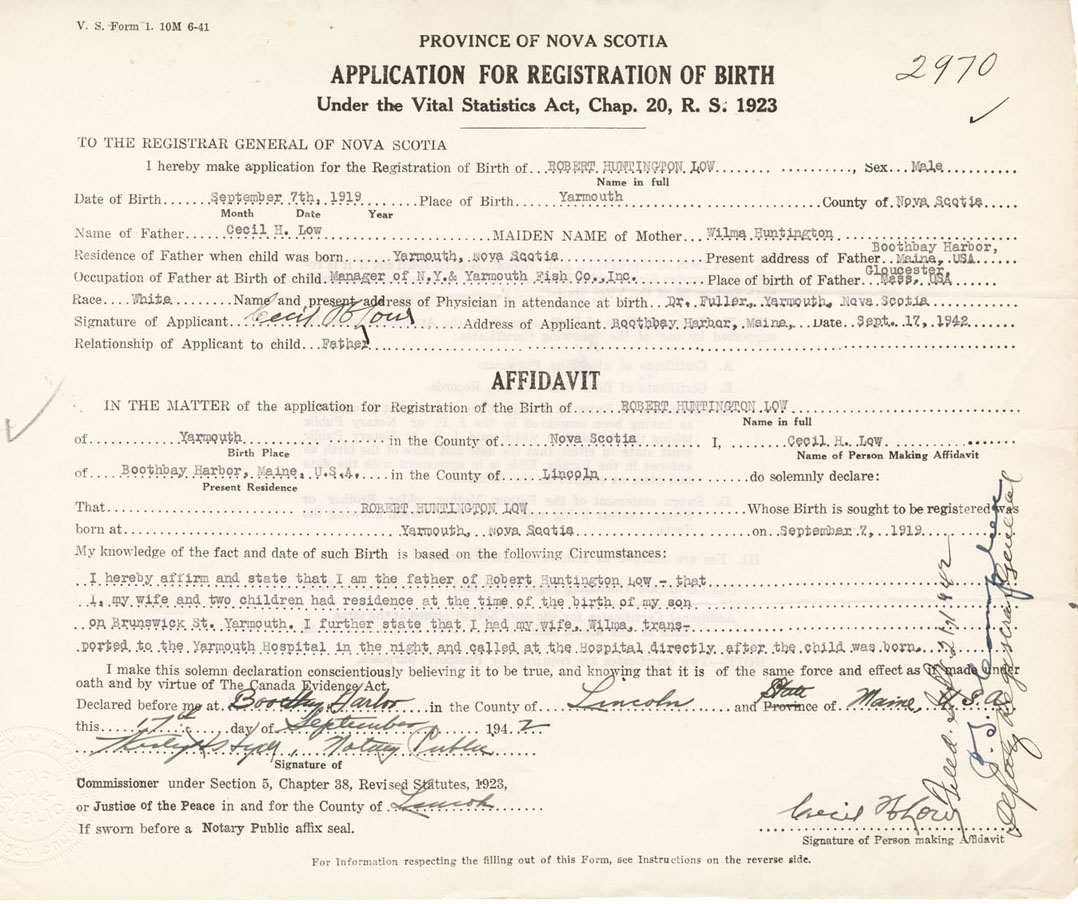 V. S. Form 1. 10M 6-41
PROVINCE OF NOVA SCOTIA
2970
APPLICATION FOR REGISTRATION OF BIRTH
Under the Vital Statistics Act, Chap. 20, R. S. 1923
TO THE REGISTRAR GENERAL OF NOVA SCOTIA
I hereby make application for the Registration of Birth of ROBERT HUNTINGTON LOW, Sex Male
Name in full
Date of Birth September 7th, 1919 Place of Birth Yarmouth County of Nova Scotia
Month Date Year
Name of Father Cecil H. Low MAIDEN NAME of Mother Wilma Huntington
Residence of Father when child was born Yarmouth, Nova Scotia Present address of Father Boothbay Harbor, Maine, USA
Occupation of Father at Birth of child Manager of N.Y.& Yarmouth Fish Co., Inc. Place of birth of Father Gloucester, Mass. USA
Race White Name and present address of Physician in attendance at birth Dr. Fuller, Yarmouth, Nova Scotia
Signature of Applicant Cecil H Low Address of Applicant Boothbay Harbor, Maine, Date Sept. 17, 1942
Relationship of Applicant to child Father
AFFIDAVIT
IN THE MATTER of the application for Registration of the Birth of ROBERT HUNTINGTON LOW
Name in full
of Yarmouth in the County of Nova Scotia I, Cecil H. Low
Birth Place Name of Person Making Affidavit
of Boothbay Harbor, Maine, U.S.A. in the County of Lincoln do solemnly declare:
Present Residence
That ROBERT HUNTINGTON LOW Whose Birth is sought to be registered was
born at Yarmouth, Nova Scotia on September 7, 1919
My knowledge of the fact and date of such Birth is based on the following Circumstances:
I hereby affirm and state that I am the father of Robert Huntington Low - that
I, my wife and two children had residence at the time of the birth of my son
on Brunswick St. Yarmouth. I further state that I had my wife, Wilma, trans-
ported to the Yarmouth Hospital in the night and called at the Hospital directly after the child was born.
I make this solemn declaration conscientiously believing it to be true, and knowing that it is of the same force and effect as if made under
oath and by virtue of The Canada Evidence Act,
Declared before me at Boothbay Harbor in the County of Lincoln and State Province of Maine, U.S.A.
this 17th day of September 1942
Notary Public
Signature of
Commissioner under Section 5, Chapter 38, Revised Statutes, 1923,
or Justice of the Peace in and for the County of Lincoln
If sworn before a Notary Public affix seal.
Cecil H Low
Signature of Person making Affidavit
For Information respecting the filling out of this Form, see Instructions on the reverse side.
Deputy Registrar General